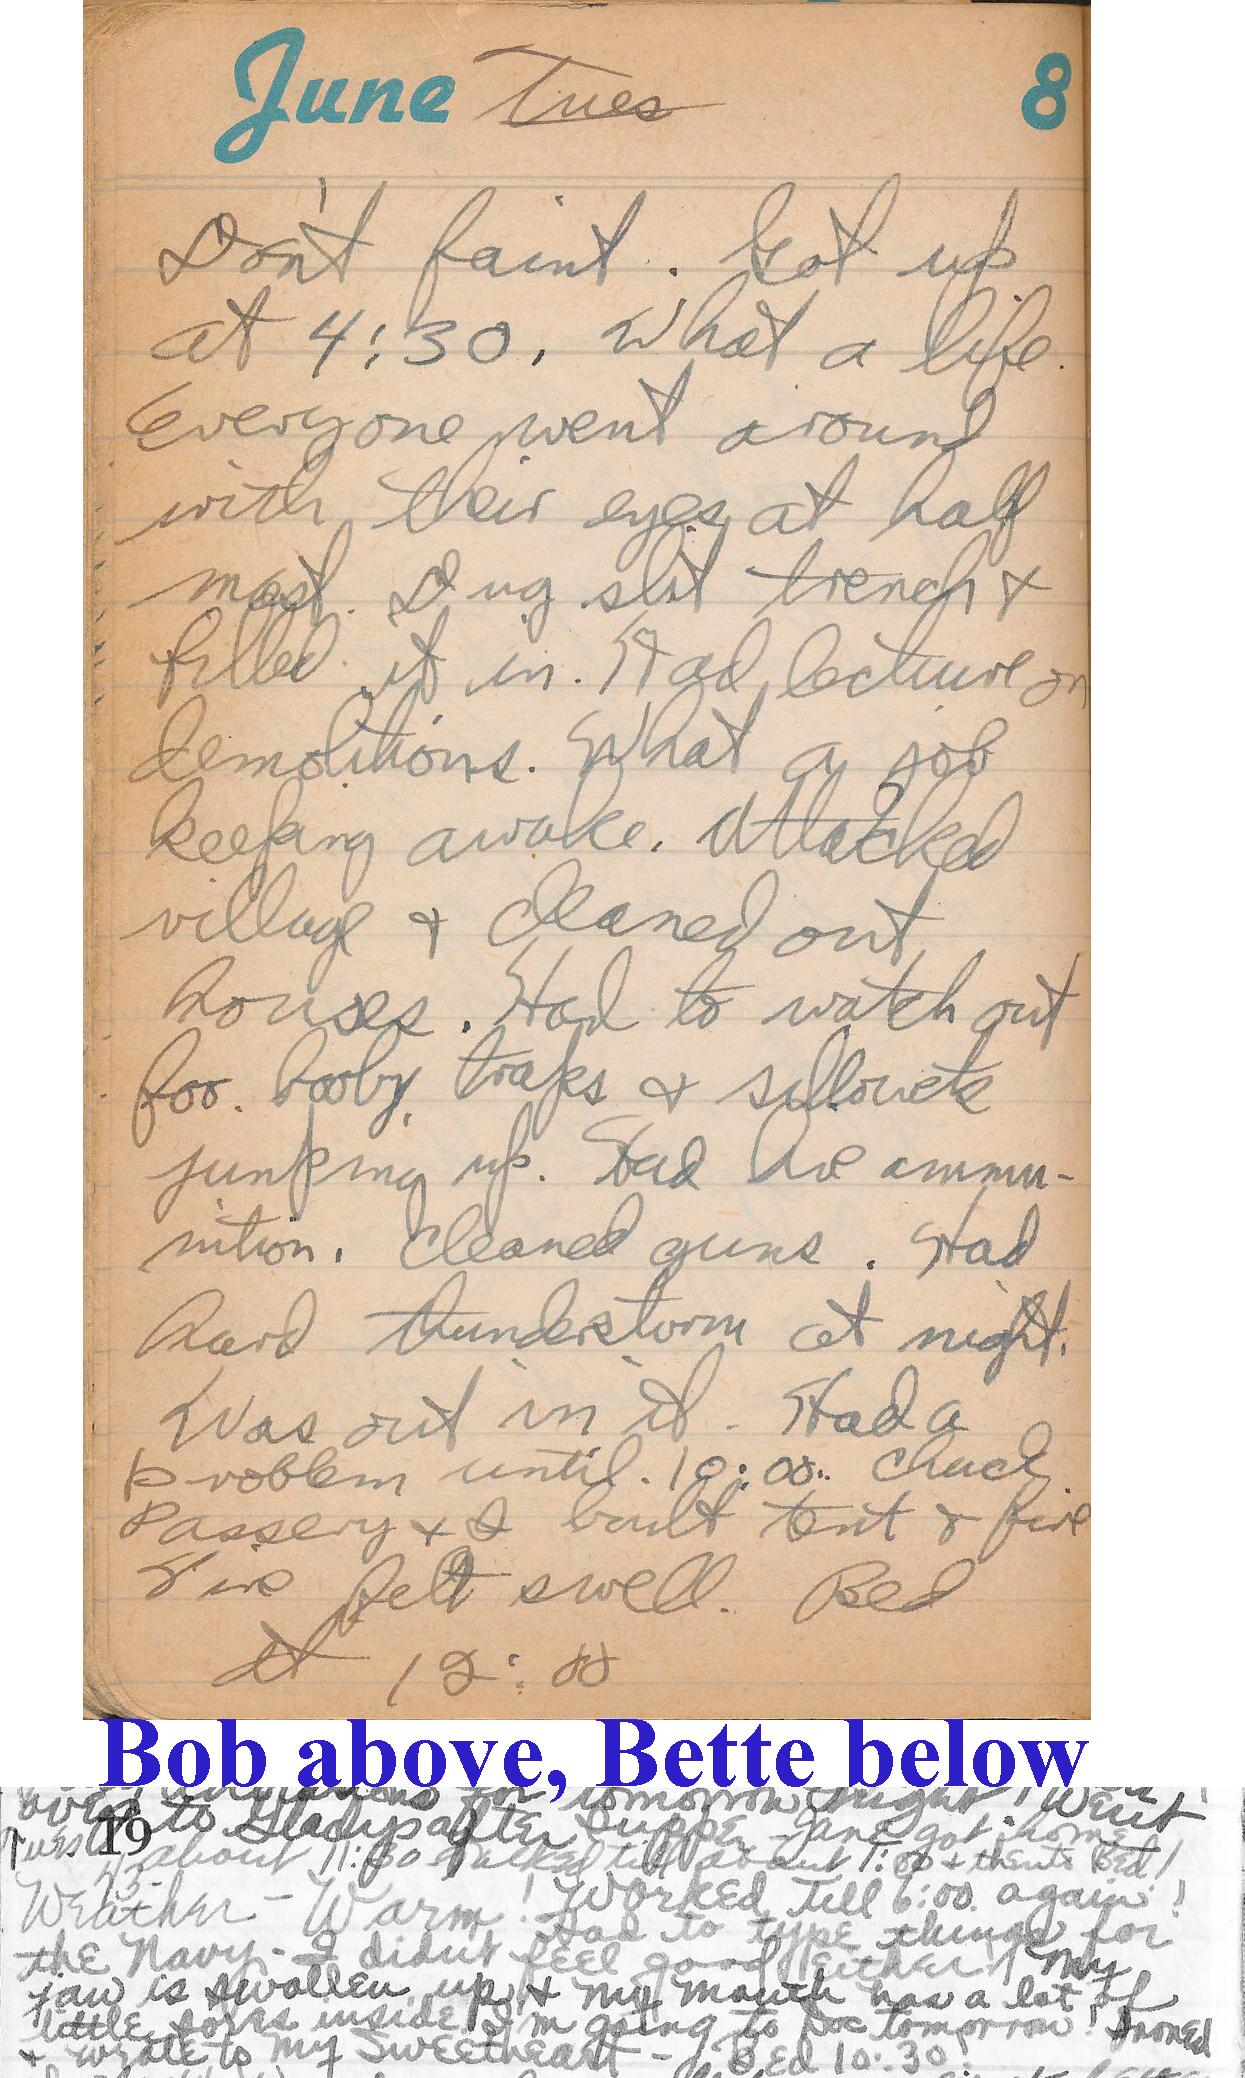 June Tues 8
Don't faint. Got up
at 4:30. What a life.
Everyone went around
with their eyes at half
mast. Dug slit trench &
filled it in. Had lecture on
demolitions. What a job
keeping awake. Attacked
village & cleaned out
houses. Had to watch out
for booby traps & sillouete
jumping up. Had live ammu-
nition. Cleaned guns. Had
hard thunderstorm at night.
Was out in it. Had a
problem until 10:00. Chuck
Passery & I built tent & fire
Fire felt swell. Bed
at 12:00
Bob above, Bette below
for tomorrow night! Went
over to Gladys after supper - Jane got home
Tues 19
about 11:30 talked till about 1:00 & then to Bed!
43-
Weather - Warm! Worked till 6:00 again!
Had to type things for
the Navy - I didn't feel good either! My
jaw is swollen up & my mouth has a lot of
little sores inside I'm going to Doc tomorrow! Ironed
& wrote to my Sweetheart - Bed 10:30!